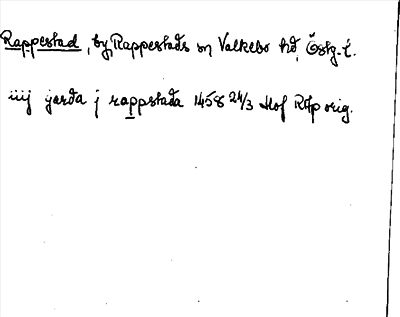 Rappestad, by, Rappestads sn Valkebo hd, Östg. l.
iiij jorda j rappstada 1458 24/3 Hof RAp orig.